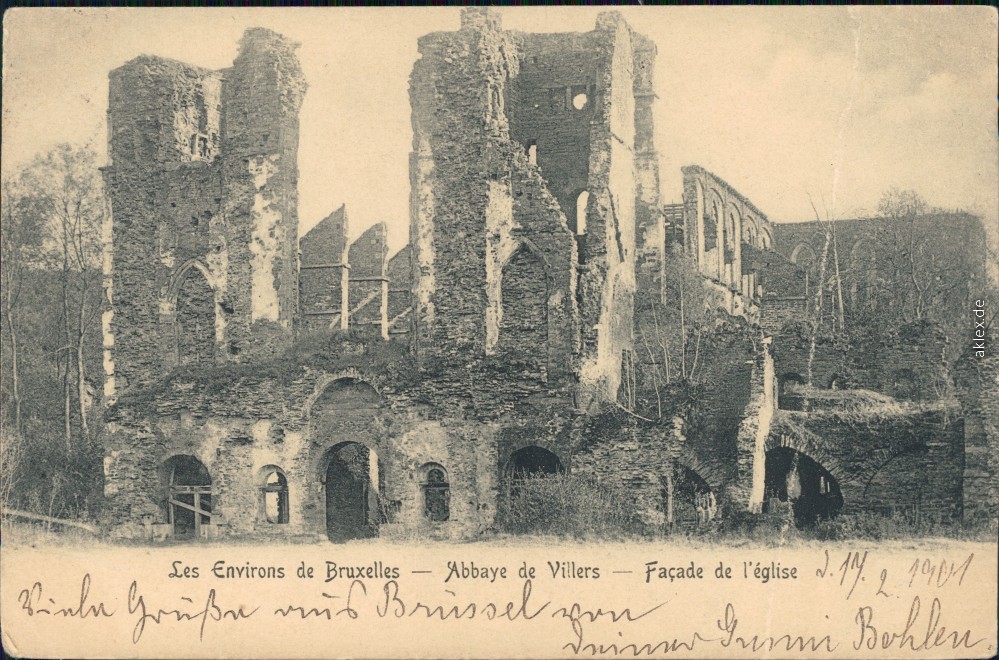 Les Environs de Bruxelles — Abbaye de Villers — Façade de l'église
d. 14. 2. 1901
Viele Grüße aus Brüssel von
Deiner Bohlen.
aklex.de